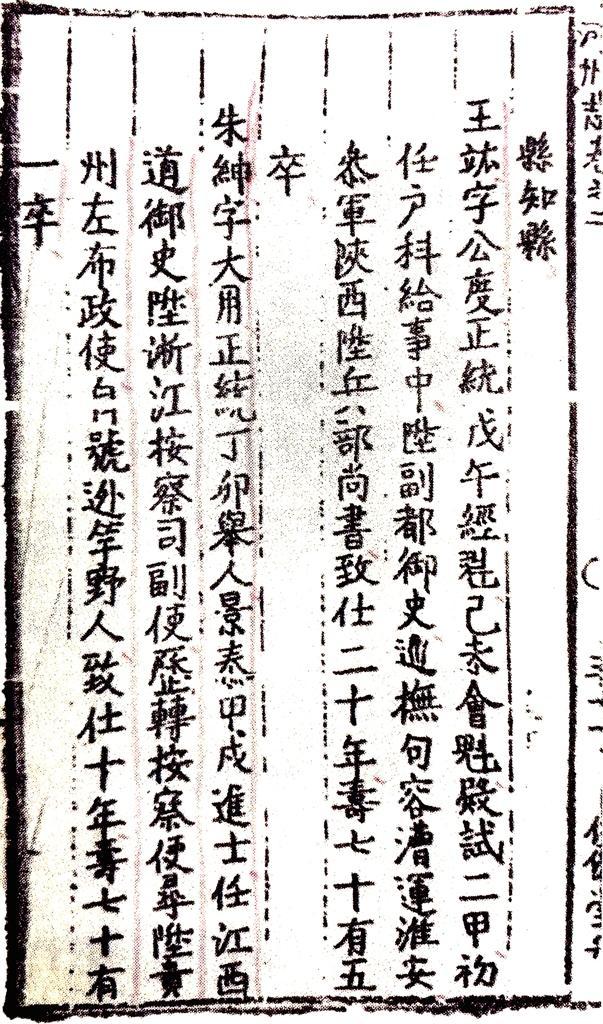 州志卷之二
縣知縣
王竑字公度正統戊午經魁己未會魁殿試二甲初
任户科給事中陞副都御史廵撫句容漕運淮安
叅軍陝西陞兵部尚書致仕二十年壽七十有五
卒
朱紳字大用正統丁卯舉人景泰甲戌進士任江西
道御史陞浙江按察司副使歷轉按察使尋陞貴
州左布政使自號迯竿野人致仕十年壽七十有
一卒